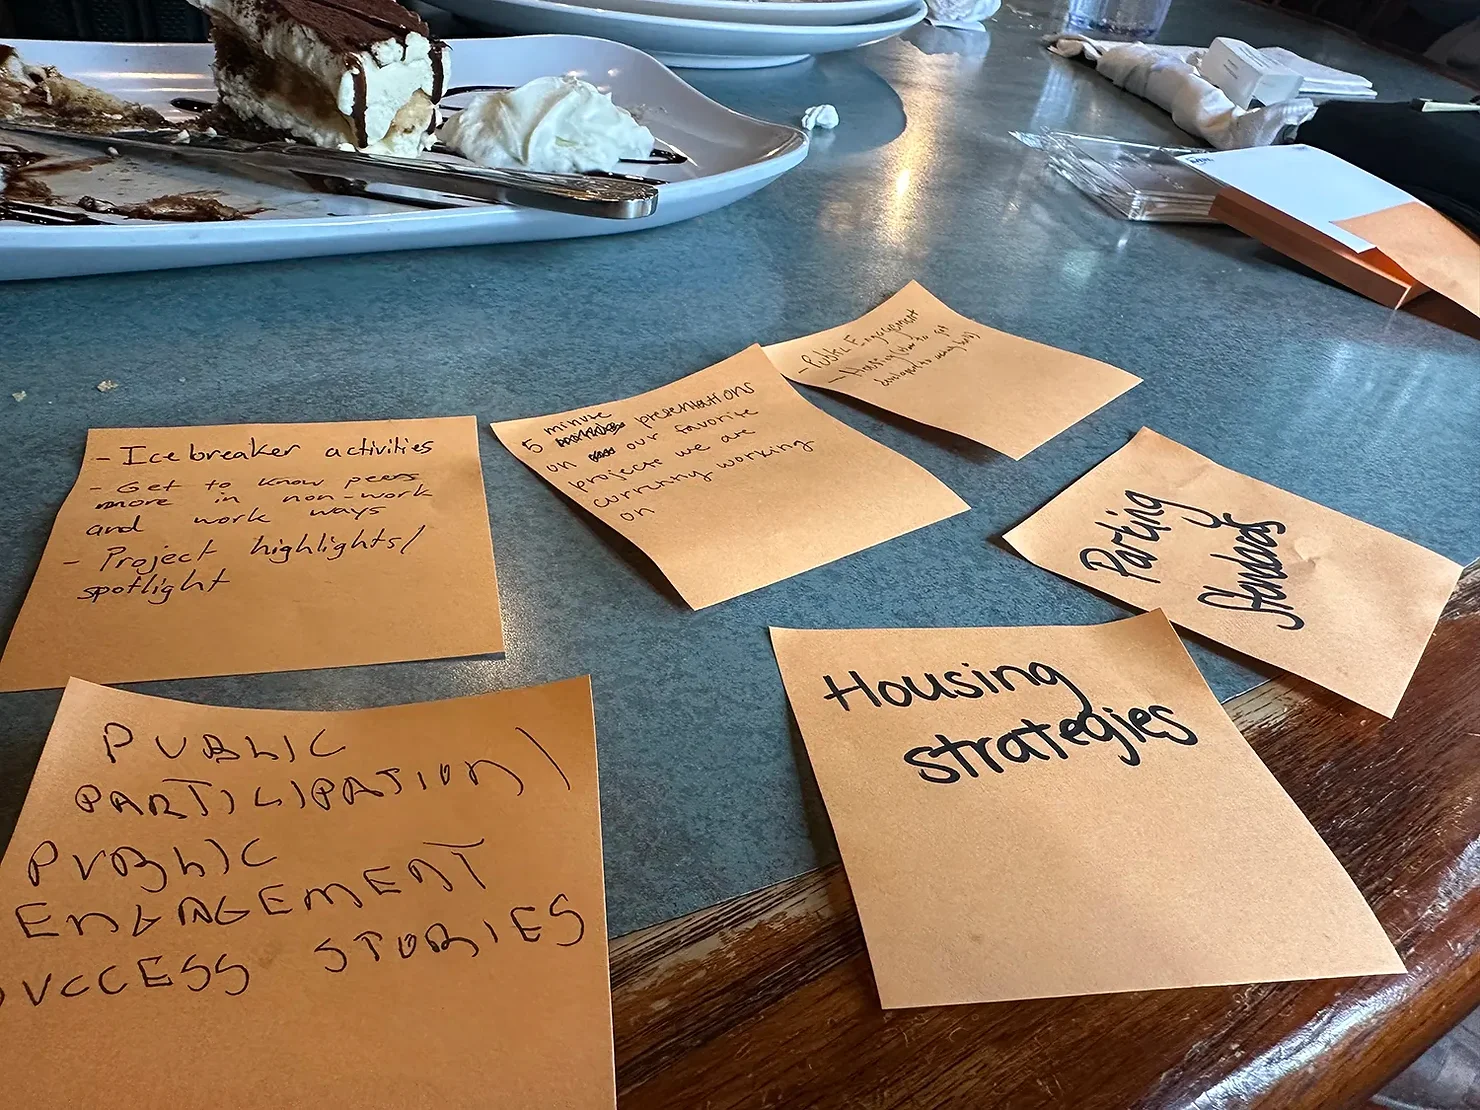 - Icebreaker activities
- Get to know peers
more in non-work
and work ways
- Project highlights/
spotlight
5 minute presentations
on our favorite
projects we are
currently working
on
- Public Engagement
- Housing (how to get
developers to
Parking
Standards
PUBLIC
PARTICIPATION/
PUBLIC
ENGAGEMENT
SUCCESS STORIES
Housing
strategies